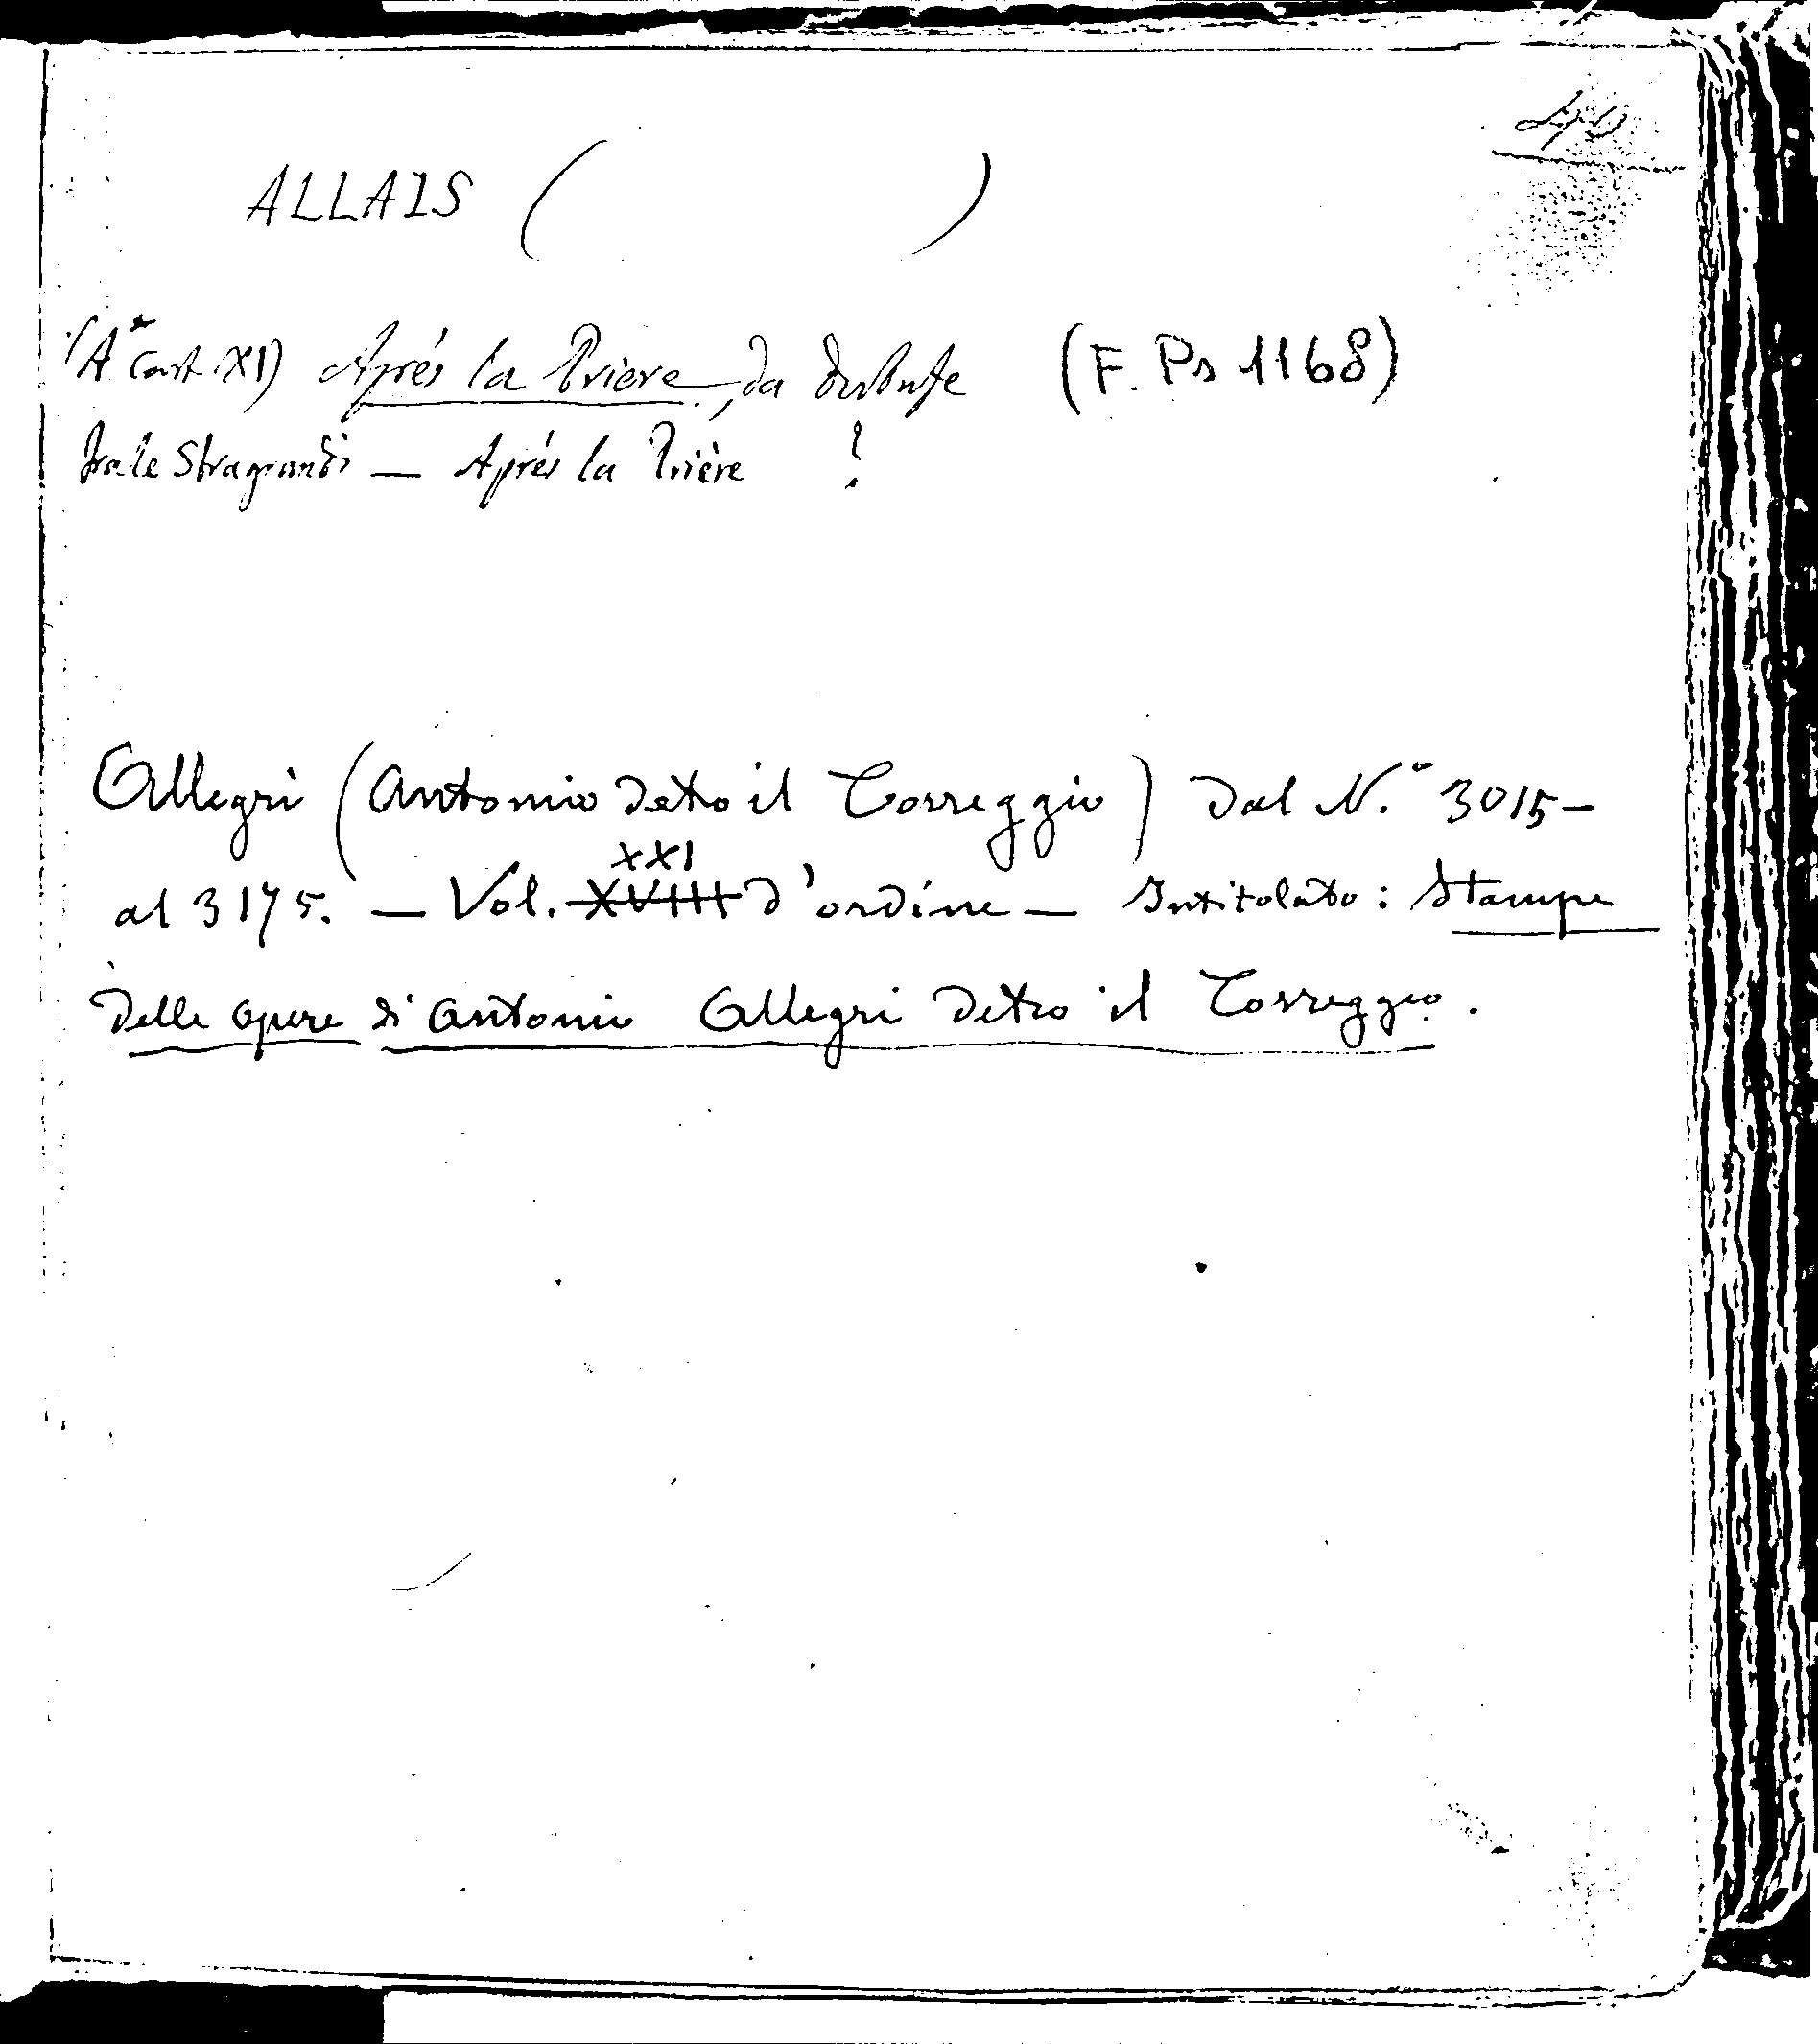 40
ALLAIS ( )
(A* Cart. XI) Aprés la Priere, da Dubufe (F. Ps 1168)
fra le Stragrandi — Aprés la Prière ?
Allegri (Antonio detto il Correggio) dal N.° 3015 –
al 3175. — Vol. XVIII XXI d'ordine — Intitolato: Stampe
delle opere di Antonio Allegri detto il Correggio.